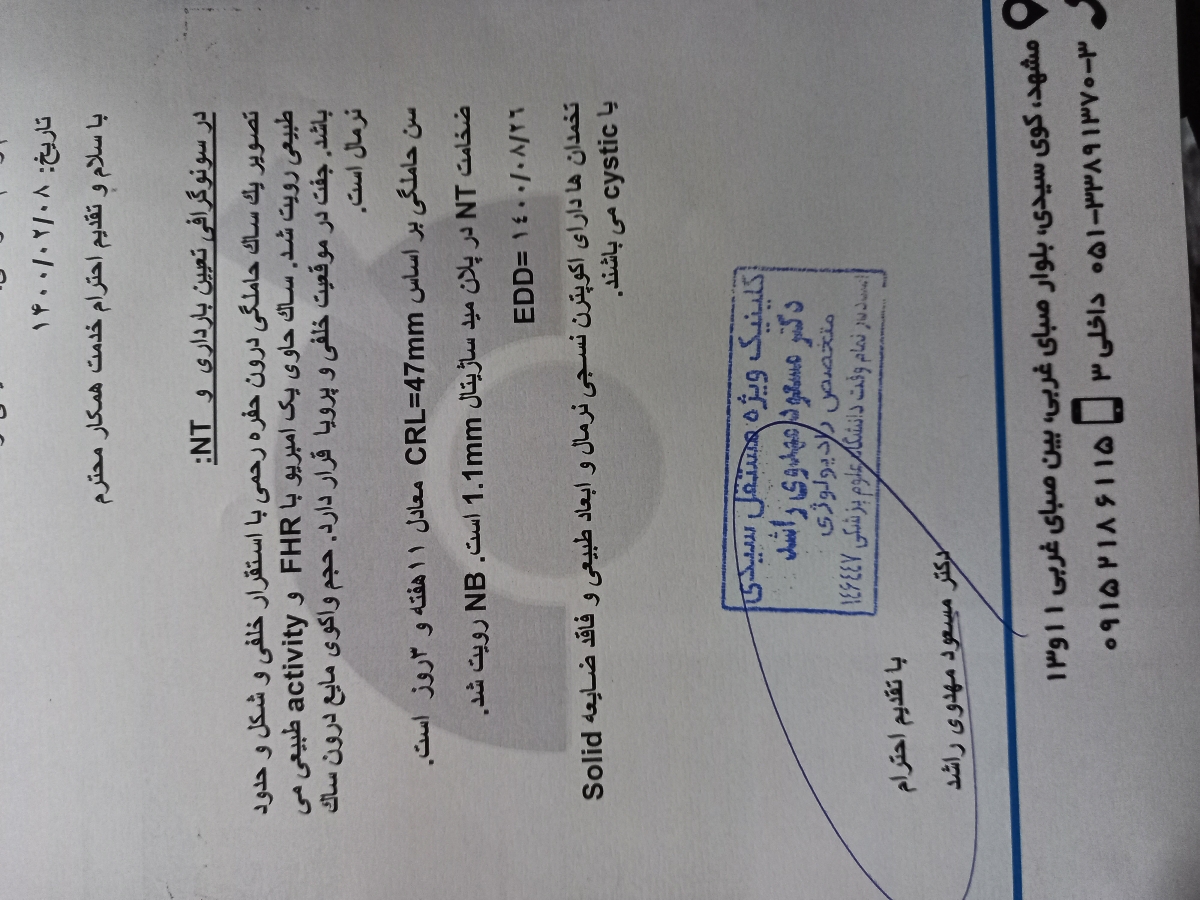 تاریخ: ۱۴۰۰/۰۲/۰۸
با سلام و تقدیم احترام خدمت همکار محترم
در سونوگرافی تعیین بارداری و NT:
تصویر یك ساك حاملگی درون حفره رحمی با استقرار خلفی و شکل و حدود
طبیعی رویت شد. ساك حاوی یک امبریو با FHR و activity طبیعی می
باشد. جفت در موقعیت خلفی و پرویا قرار دارد. حجم واکوی مایع درون ساك
نرمال است.
سن حاملگی بر اساس CRL=47mm معادل ۱۱هفته و ۳روز است.
ضخامت NT در پلان مید ساژیتال 1.1mm است. NB رویت شد.
EDD= ۱٤۰۰/۰۸/۲٦
تخمدان ها دارای اکوپترن نسجی نرمال و ابعاد طبیعی و فاقد ضایعه Solid
یا cystic می باشند.
کلینیک ویژه مستقل سیدی
دکتر مسعود مهدوی راشد
متخصص رادیولوژی
استادیار تمام وقت دانشگاه علوم پزشکی ۱٤۶٤٤۷
با تقدیم احترام
دکتر مسعود مهدوی راشد
مشهد، کوی سیدی، بلوار صبای غربی، بین صبای غربی ۱۱و۱۳
۰۵۱-۳۳۸۹۱۳۷۰-۳ داخلی ۳ ۰۹۱۵۲۱۸۶۱۱۵